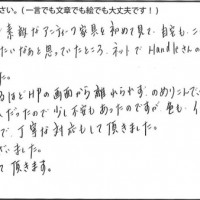 さい。(一言でも文章でも絵でも大丈夫です!)
素敵なアンティーク家具を初めて見て、自宅も、こ
たいなあと思っていたところ、ネットでHandleさんの
た。
るほどHPの画面から離れられず、のめりこんでい
だったので少し不安もあったのですが、色も、イ
で、丁寧な対応もして頂き、
いました。
て頂きます。